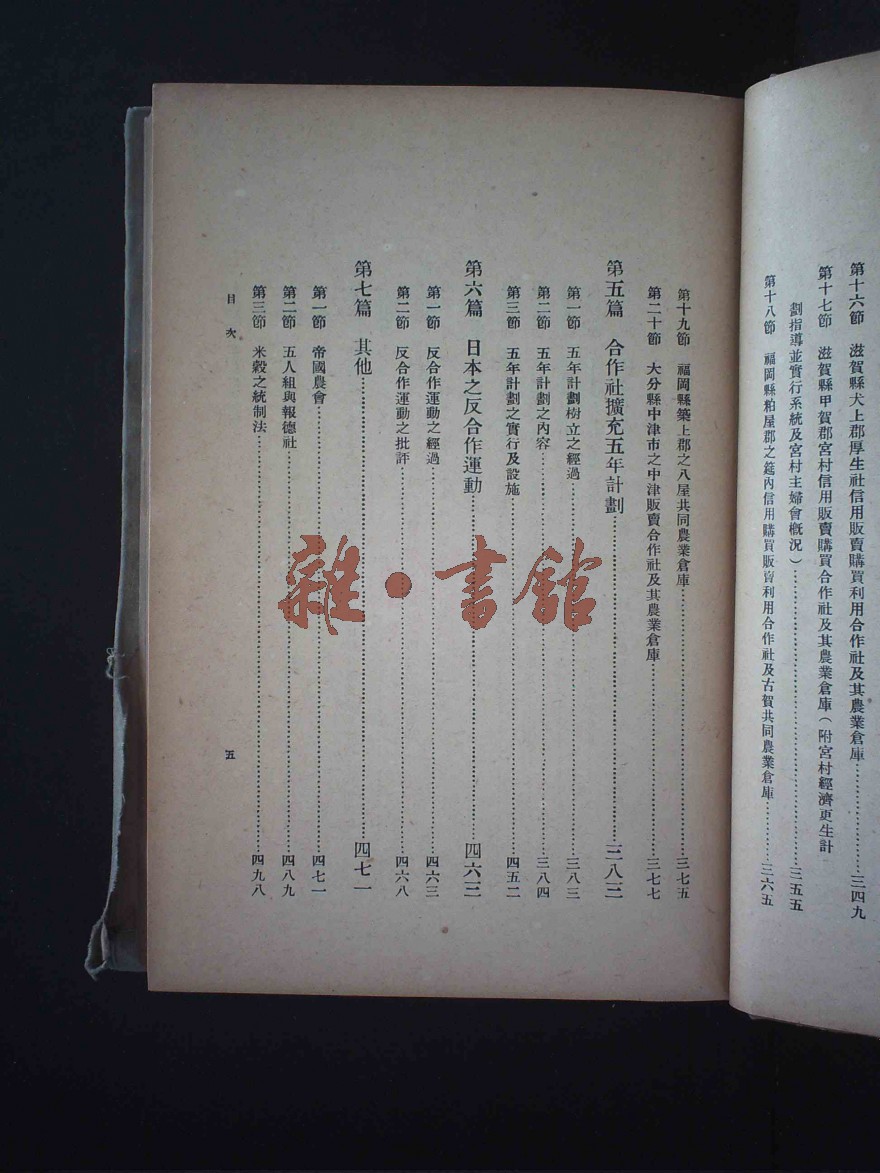 第十六節 滋賀縣犬上郡厚生社信用販賣購買利用合作社及其農業倉庫……三四九
第十七節 滋賀縣甲賀郡宮村信用販賣購買合作社及其農業倉庫（附宮村經濟更生計
劃指導並實行系統及宮村主婦會概況）……三五五
第十八節 福岡縣粕屋郡之筵內信用購買販賣利用合作社及古賀共同農業倉庫……三六五
第十九節 福岡縣築上郡之八屋共同農業倉庫……三七五
第二十節 大分縣中津市之中津販賣合作社及其農業倉庫……三七七
第五篇 合作社擴充五年計劃……三八三
第一節 五年計劃樹立之經過……三八三
第二節 五年計劃之內容……三八四
第三節 五年計劃之實行及設施……四五二
第六篇 日本之反合作運動……四六三
第一節 反合作運動之經過……四六三
第二節 反合作運動之批評……四六八
第七篇 其他……四七一
第一節 帝國農會……四七一
第二節 五人組與報德社……四八九
第三節 米穀之統制法……四九八
目次 五
雜·書館